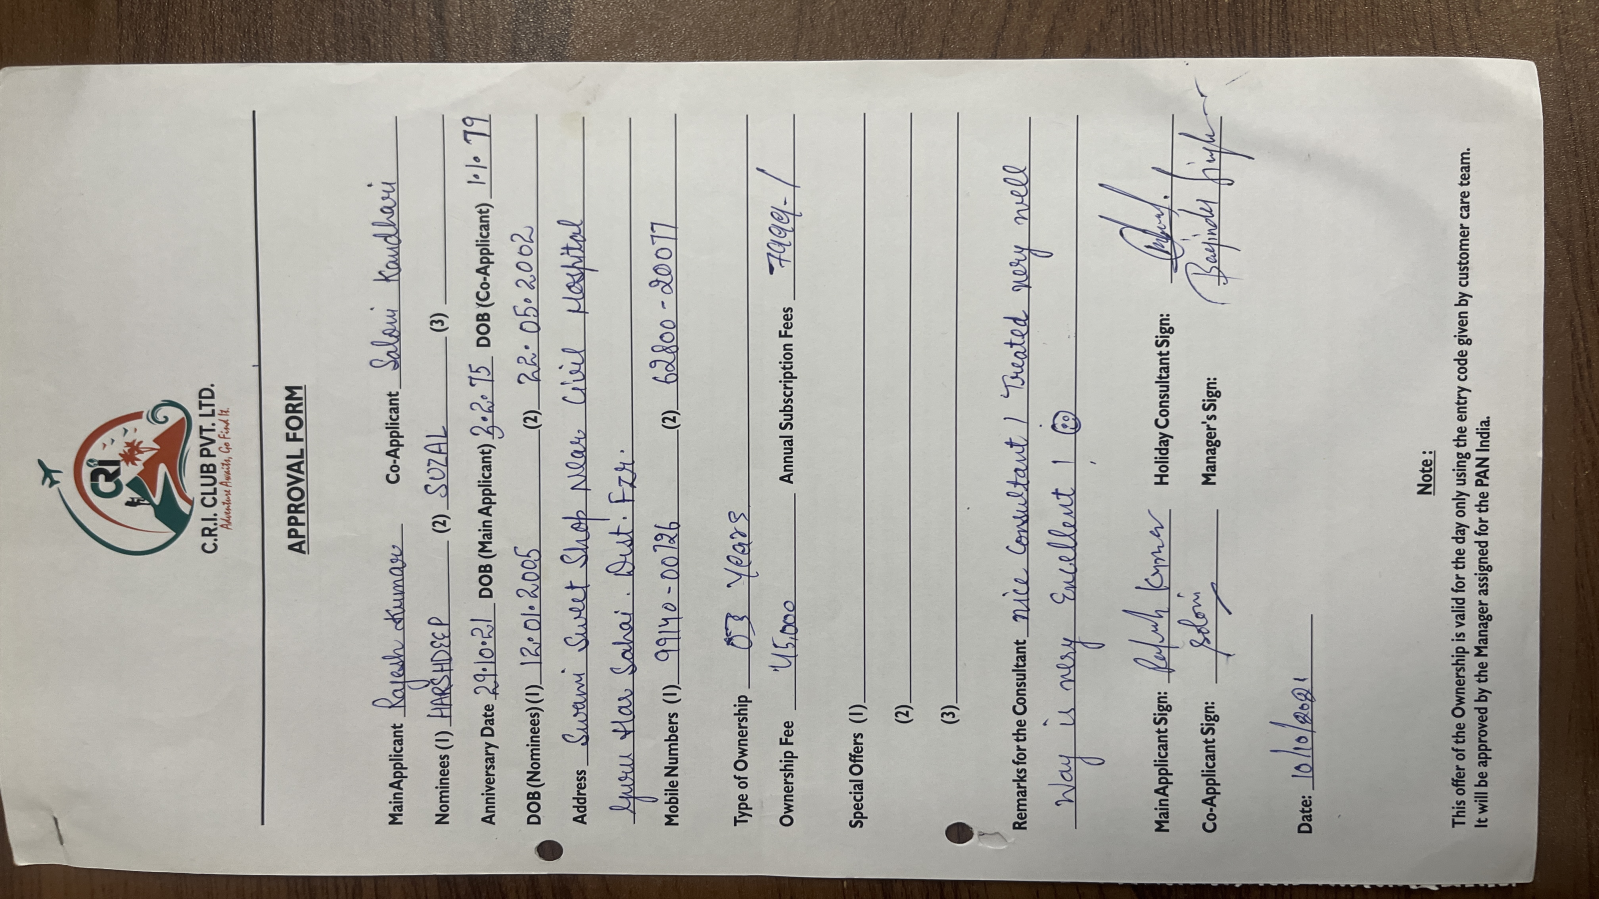 CRI
C.R.I. CLUB PVT. LTD.
Adventure Awaits, Go Find It.
APPROVAL FORM
Main Applicant Rajesh Kumar Co-Applicant Saloni Kandhari
Nominees (1) HARSHDEEP (2) SUZAL (3)
Anniversary Date 29.10.21 DOB (Main Applicant) 3.2.75 DOB (Co-Applicant) 1.1.79
DOB (Nominees) (1) 12.01.2005 (2) 22.05.2002
Address Swami Sweet Shop Near Civil Hospital
Guru Har Sahai. Dist. Fzr.
Mobile Numbers (1) 99140-00726 (2) 62800-20077
Type of Ownership 03 Years
Ownership Fee 45,000 Annual Subscription Fees 7999-/
Special Offers (1)
(2)
(3)
Remarks for the Consultant nice Consultant / Treated very well
Way is very Excellent !
Main Applicant Sign: Rajesh Kumar Holiday Consultant Sign:
Co-Applicant Sign: Saloni Manager's Sign: Singh
Date: 10/10/2021
Note :
This offer of the Ownership is valid for the day only using the entry code given by customer care team.
It will be approved by the Manager assigned for the PAN India.